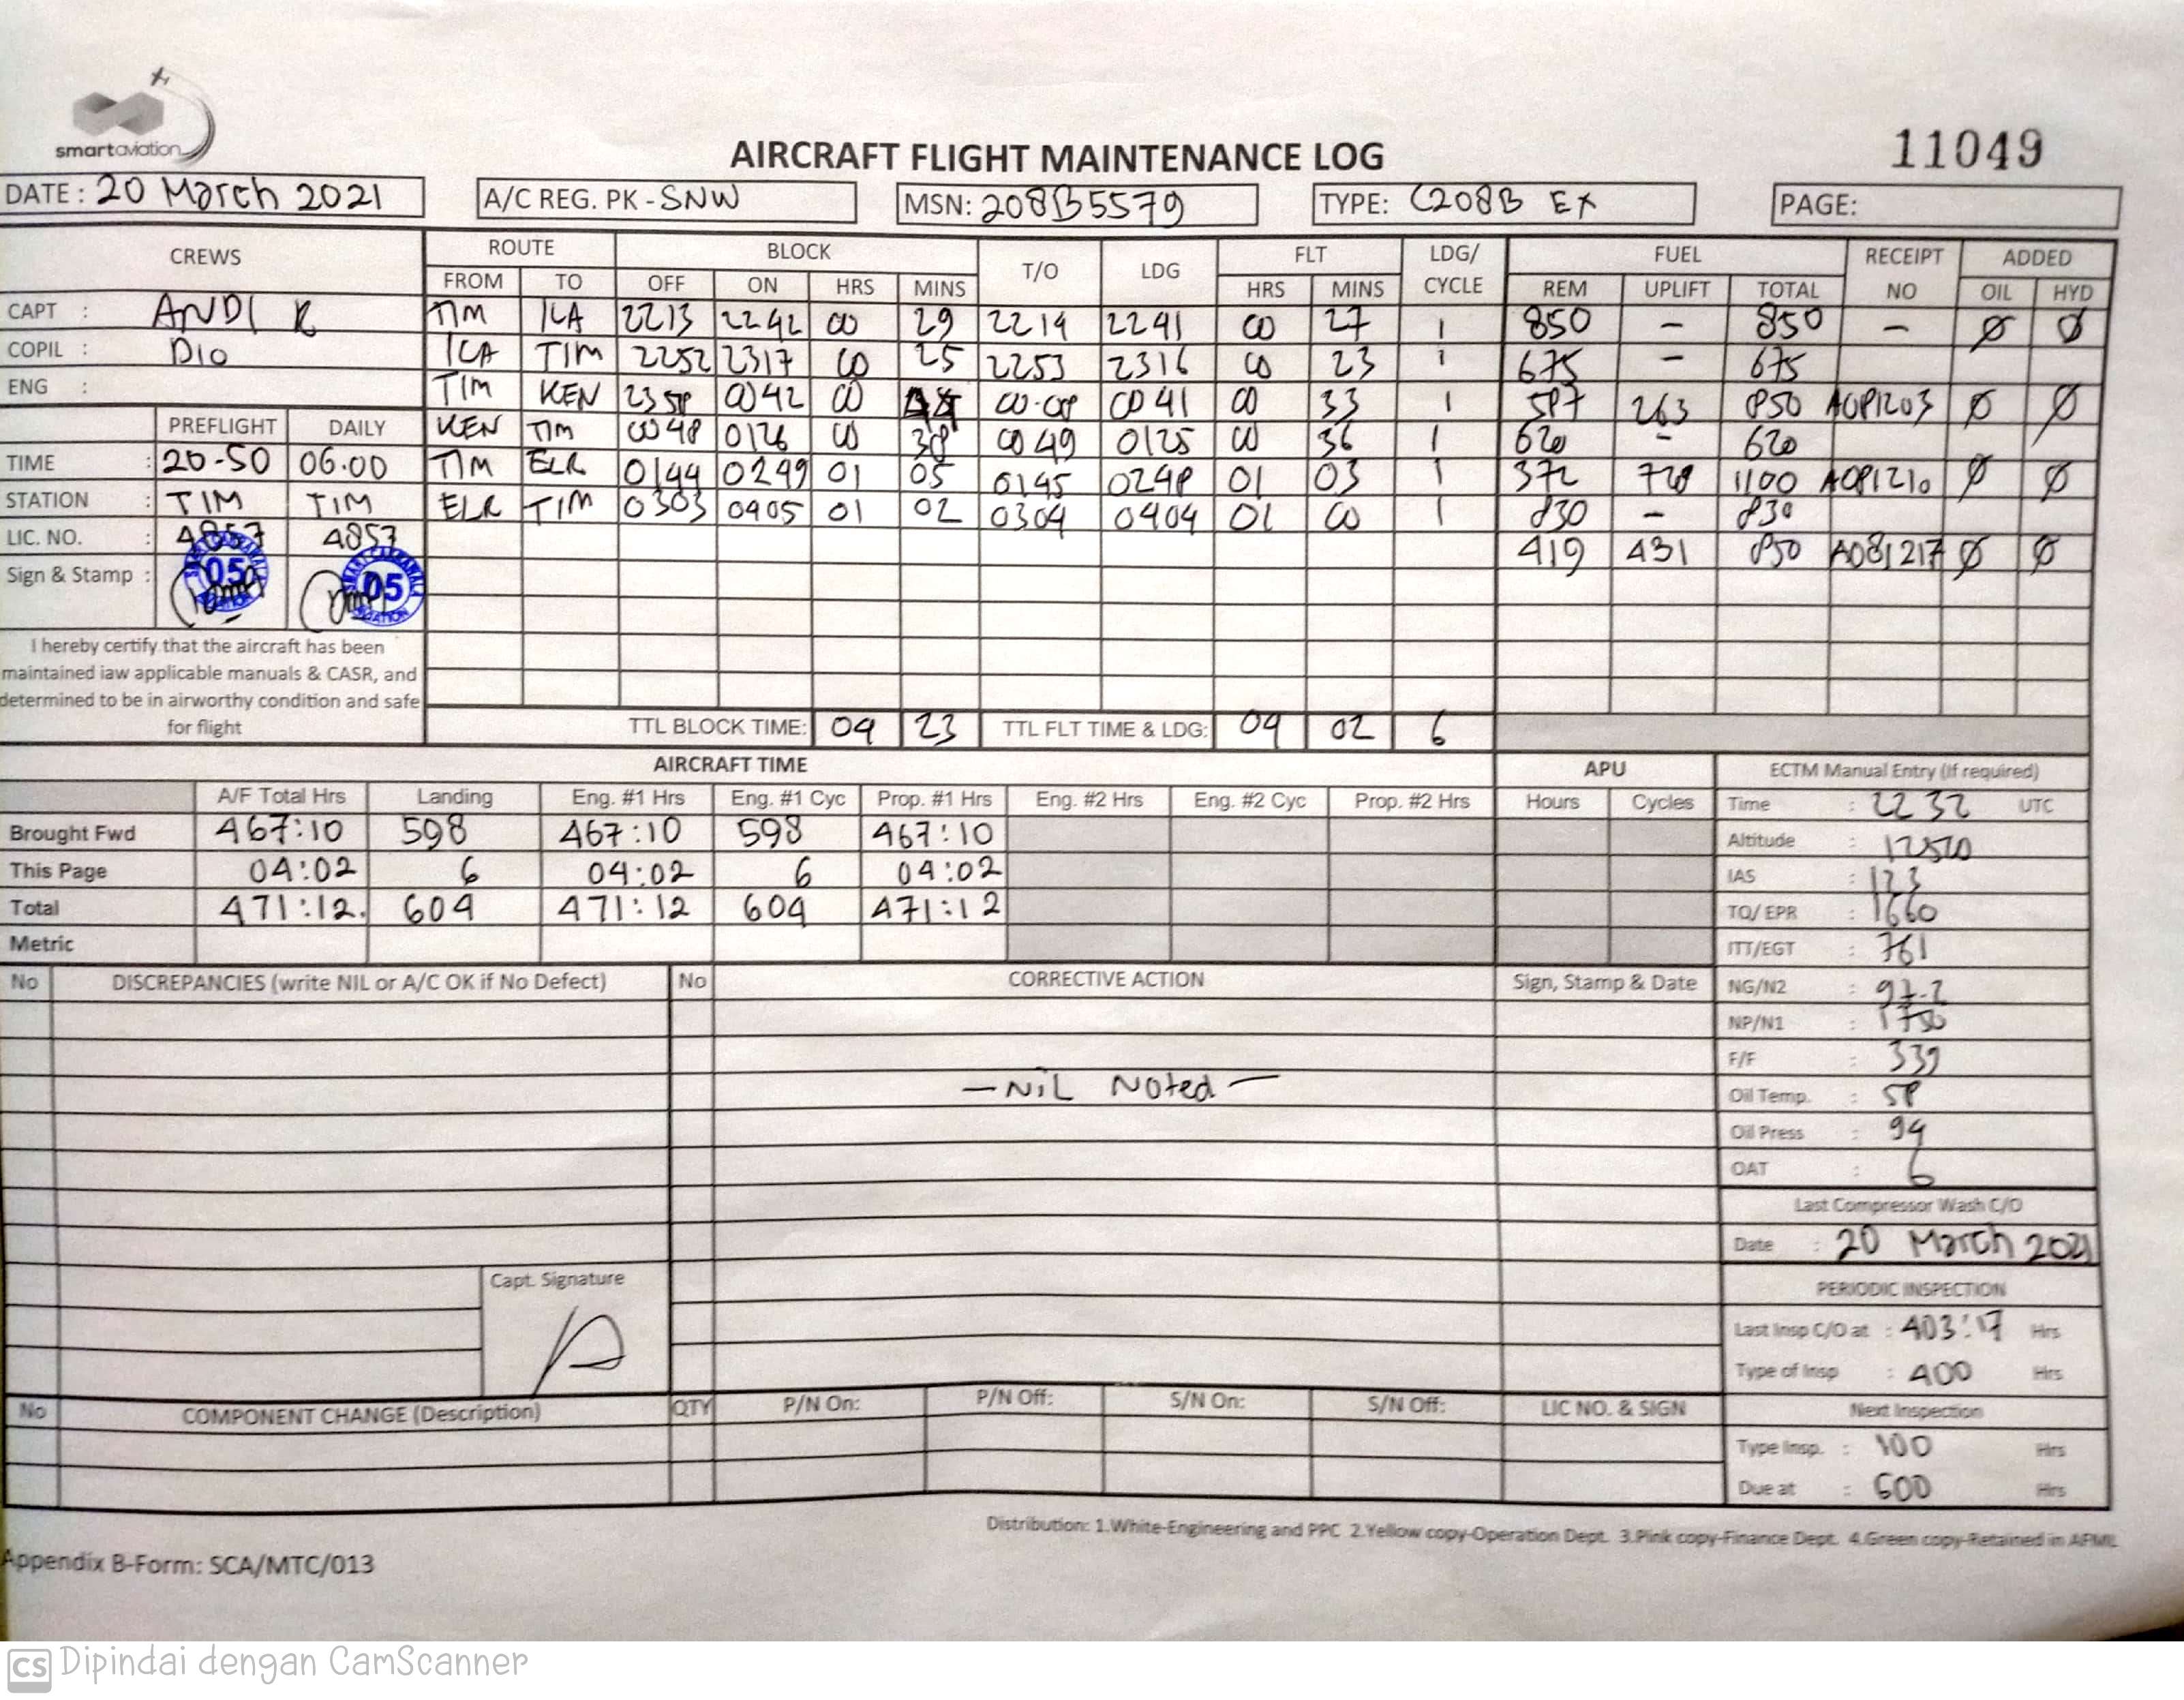 smartaviation
AIRCRAFT FLIGHT MAINTENANCE LOG
11049
DATE : 20 March 2021
A/C REG. PK - SNW
MSN: 208B5579
TYPE: C208B EX
PAGE:
CREWS ROUTE BLOCK T/O LDG FLT LDG/ CYCLE FUEL RECEIPT NO ADDED
FROM TO OFF ON HRS MINS HRS MINS REM UPLIFT TOTAL OIL HYD
CAPT : ANDI K
COPIL : DIO
ENG :
TIM ILA 2213 2242 00 29 2214 2241 00 27 1 850 - 850 - Ø Ø
ILA TIM 2252 2317 00 25 2253 2316 00 23 1 675 - 675
TIM KEN 2358 0042 00 44 00.08 0041 00 33 1 587 263 850 A081203 Ø Ø
KEN TIM 0048 0126 00 38 0049 0125 00 36 1 620 - 620
TIM ELR 0144 0249 01 05 0145 0248 01 03 1 372 728 1100 A081210 Ø Ø
ELR TIM 0303 0405 01 02 0304 0404 01 00 1 830 - 830
419 431 850 A081217 Ø Ø
PREFLIGHT DAILY
TIME : 20-50 06.00
STATION : TIM TIM
LIC. NO. : 4857 4857
Sign & Stamp : 05 05
I hereby certify that the aircraft has been
maintained iaw applicable manuals & CASR, and
determined to be in airworthy condition and safe
for flight
TTL BLOCK TIME: 04 23 TTL FLT TIME & LDG: 04 02 6
AIRCRAFT TIME APU
A/F Total Hrs Landing Eng. #1 Hrs Eng. #1 Cyc Prop. #1 Hrs Eng. #2 Hrs Eng. #2 Cyc Prop. #2 Hrs Hours Cycles
Brought Fwd 467:10 598 467:10 598 467:10
This Page 04:02 6 04:02 6 04:02
Total 471:12. 604 471:12 604 471:12
Metric
ECTM Manual Entry (If required)
Time : 2232 UTC
Altitude : 12520
IAS : 123
TQ/ EPR : 1660
ITT/EGT : 761
NG/N2 : 97.2
NP/N1 : 1750
F/F : 339
Oil Temp. : 58
Oil Press : 94
OAT : 6
Last Compressor Wash C/O
Date : 20 March 2021
PERIODIC INSPECTION
Last Insp C/O at : 403:17 Hrs
Type of Insp : 400 Hrs
Next Inspection
Type Insp. : 100 Hrs
Due at : 600 Hrs
No DISCREPANCIES (write NIL or A/C OK if No Defect) No CORRECTIVE ACTION Sign, Stamp & Date
- NiL Noted -
Capt. Signature
No COMPONENT CHANGE (Description) QTY P/N On: P/N Off: S/N On: S/N Off: LIC NO. & SIGN
Distribution: 1.White-Engineering and PPC 2.Yellow copy-Operation Dept. 3.Pink copy-Finance Dept. 4.Green copy-Retained in AFML
Appendix B-Form: SCA/MTC/013
CS Dipindai dengan CamScanner